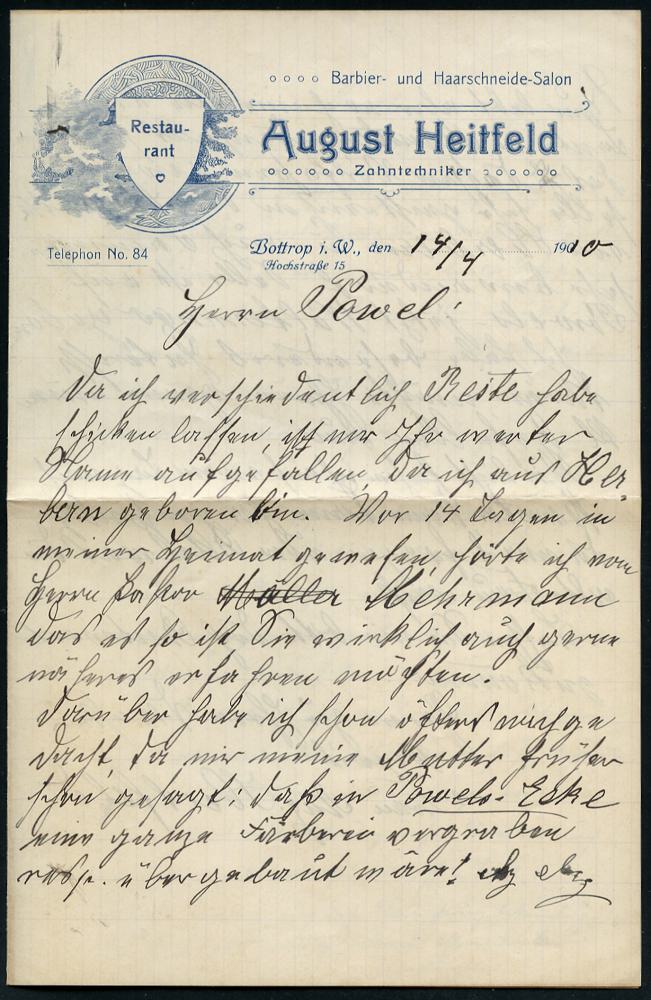 Barbier- und Haarschneide-Salon
Restau-
rant
August Heitfeld
Zahntechniker
Telephon No. 84
Bottrop i. W., den 14/4 1910
Hochstraße 15
Herrn Powel!
Da ich verschiedentlich Reste habe
schicken lassen, ist mir Ihr werter
Name aufgefallen, da ich aus Her-
bern geboren bin. Vor 14 Tagen in
meiner Heimat gewesen, hörte ich vom
Herrn Pastor Mehrmann
das es so ist Sie wirklich auch gerne
näheres erfahren möchten.
Darüber habe ich schon öfters nachge
dacht, da mir meine Mutter früher
schon gesagt: daß in Powels-Ecke
eine ganze Färberei vergraben
resp. übergebaut wäre!